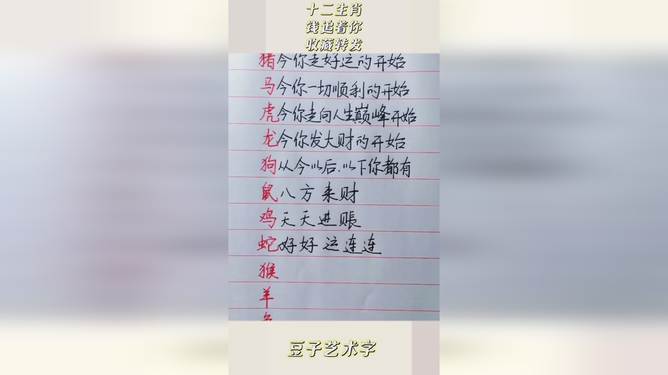 十二生肖
钱追着你
收藏转发
猪今你走好运的开始
马今你一切顺利的开始
虎今你走向人生巅峰开始
龙今你发大财的开始
狗从今以后.以下你都有
鼠八方来财
鸡天天进账
蛇好好运连连
猴
羊
豆子艺术字